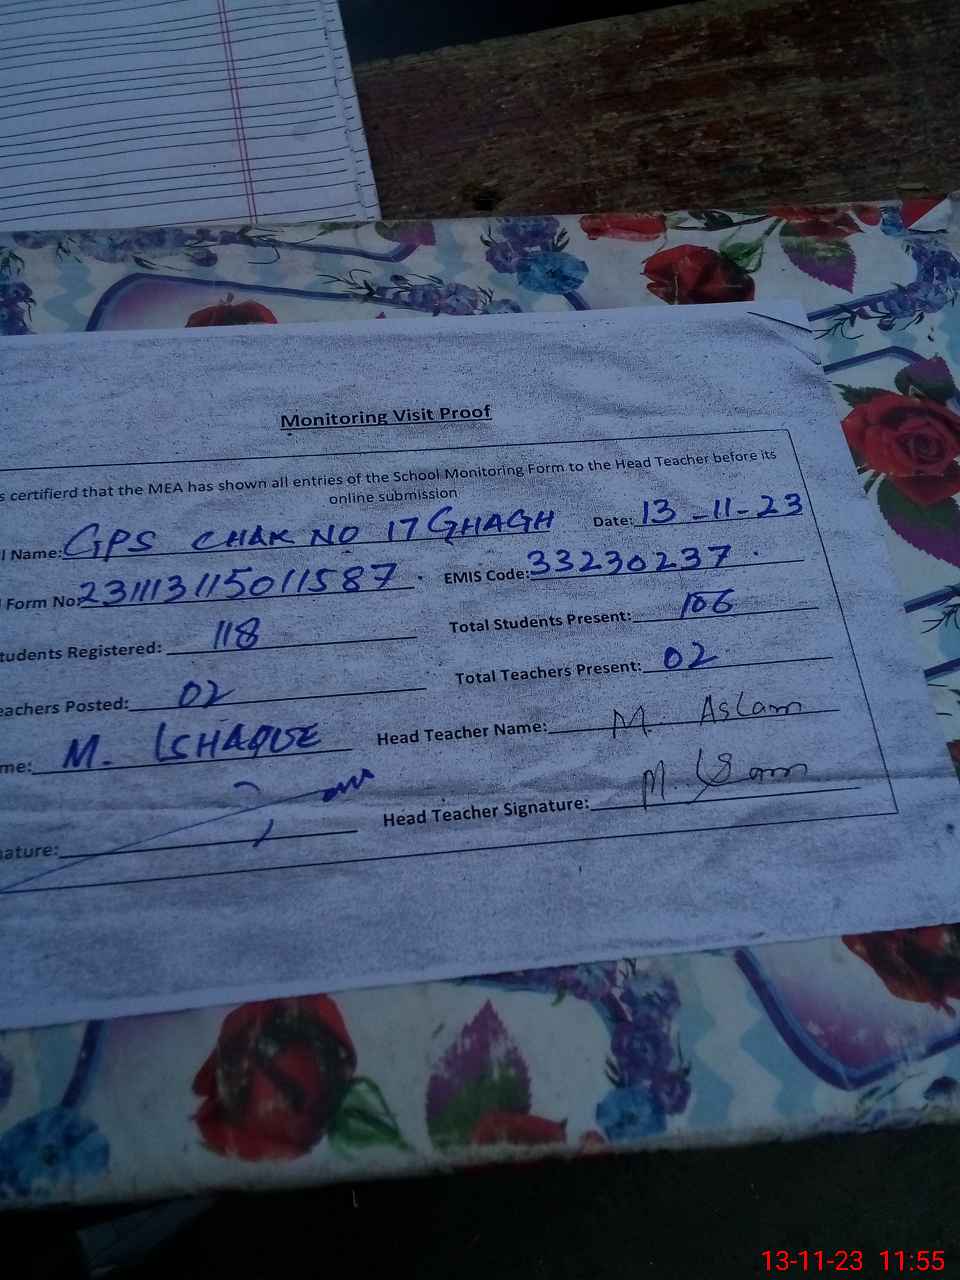 Monitoring Visit Proof
s certifierd that the MEA has shown all entries of the School Monitoring Form to the Head Teacher before its
online submission
l Name: GPS CHAK NO 17 GHAGH Date: 13-11-23
Form No: 231113115011587 EMIS Code: 33230237
tudents Registered: 118 Total Students Present: 106
eachers Posted: 02 Total Teachers Present: 02
me: M. ISHAQUE Head Teacher Name: M. Aslam
nature: Head Teacher Signature: M.
13-11-23 11:55